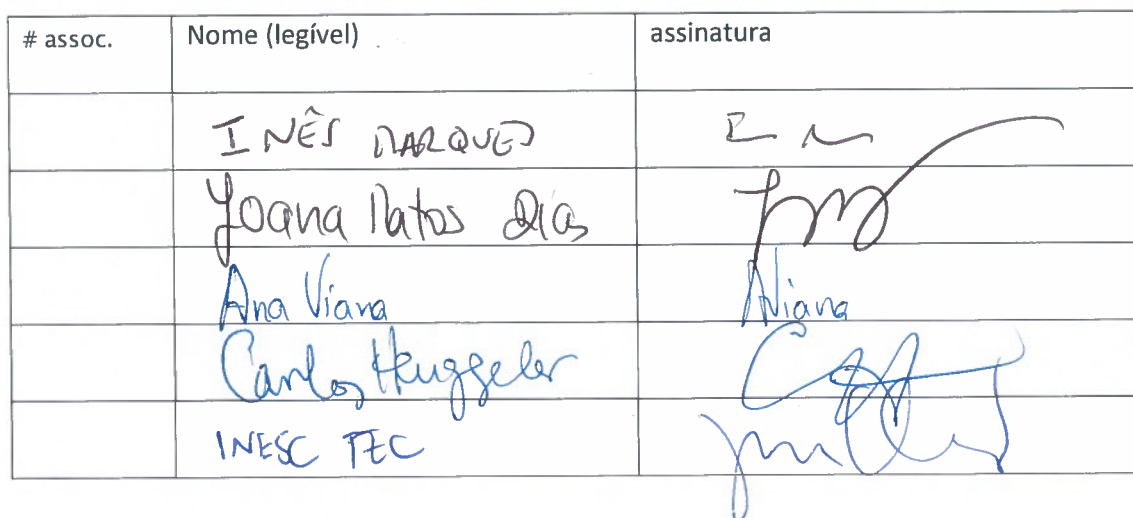 # assoc. Nome (legível) assinatura
INÊS MARQUES
Joana Matos Dias
Ana Viana AViana
Carlos Henggeler
INESC TEC